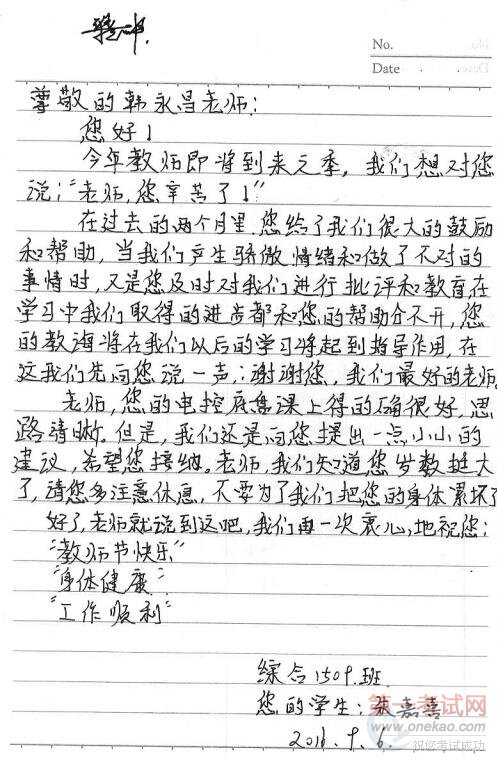 No.
Date
尊敬的韩永昌老师:
您好!
今年教师即将到来之季,我们想对您
说:"老师,您辛苦了!"
在过去的两个月里,您给了我们很大的鼓励
和帮助,当我们产生骄傲情绪和做了不对的
事情时,又是您及时对我们进行批评和教育在
学习中我们取得的进步都和您的帮助分不开,您
的教诲将在我们以后的学习将起到指导作用,在
这我们先向您说一声:谢谢您,我们最好的老师。
老师,您的电控底盘课上得的确很好,思
路清晰。但是,我们还是向您提出一点小小的
建议,希望您接纳。老师,我们知道您岁数挺大
了,请您多注意休息,不要为了我们把您的身体累坏了
好了,老师就说到这吧,我们再一次衷心地祝您:
"教师节快乐"
"身体健康"
"工作顺利"
综合1509.班
您的学生:张嘉喜
2016.9.6.
第一考试网
www.onekao.com
祝您考试成功